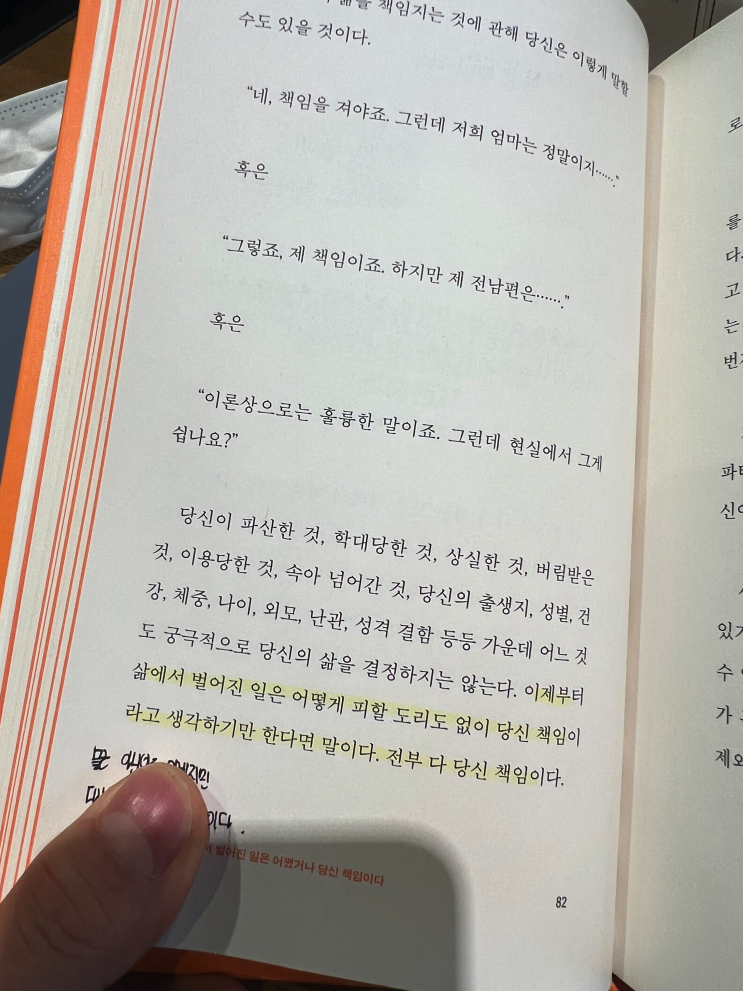 삶을 책임지는 것에 관해 당신은 이렇게 말할
수도 있을 것이다.
“네, 책임을 져야죠. 그런데 저희 엄마는 정말이지…….”
혹은
“그렇죠, 제 책임이죠. 하지만 제 전남편은…….”
혹은
“이론상으로는 훌륭한 말이죠. 그런데 현실에서 그게
쉽나요?”
당신이 파산한 것, 학대당한 것, 상실한 것, 버림받은
것, 이용당한 것, 속아 넘어간 것, 당신의 출생지, 성별, 건
강, 체중, 나이, 외모, 난관, 성격 결함 등등 가운데 어느 것
도 궁극적으로 당신의 삶을 결정하지는 않는다. 이제부터
삶에서 벌어진 일은 어떻게 피할 도리도 없이 당신 책임이
라고 생각하기만 한다면 말이다. 전부 다 당신 책임이다.
이다.
벌어진 일은 어쨌거나 당신 책임이다
82
로
를
고
는
번
파
신
있
수
가
제외